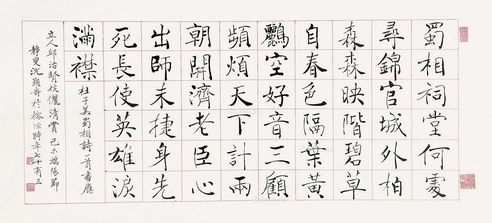 蜀相祠堂何處
尋錦官城外柏
森森映階碧草
自春色隔葉黃
鸝空好音三顧
頻煩天下計兩
朝開濟老臣心
出師未捷身先
死長使英雄淚
滿襟
杜子美蜀相詩一首書應
立人邱治賢伉儷清賞 己未端陽節
靜叟沈覲壽於榕 時年七十有三